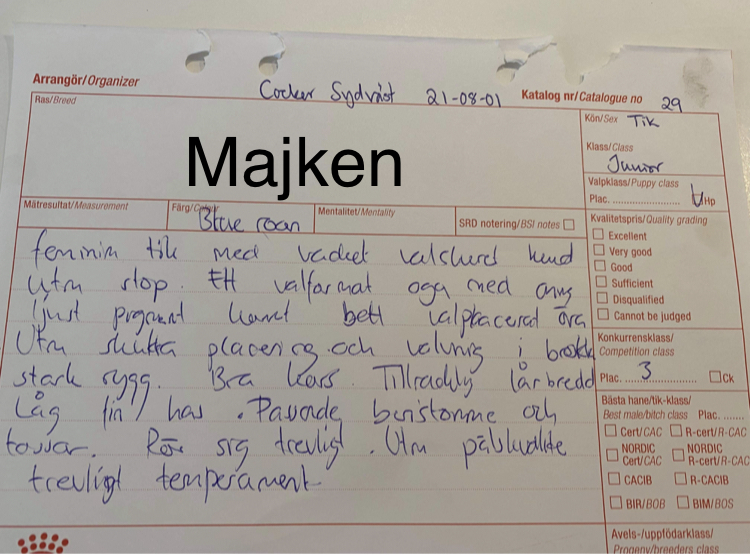 Arrangör/Organizer
Cocker Sydväst 21-08-01
Katalog nr/Catalogue no 29
Ras/Breed
Majken
Kön/Sex Tik
Klass/Class
Junior
Valpklass/Puppy class
Plac. Hp
Mätresultat/Measurement
Färg/Colour
Blue roan
Mentalitet/Mentality
SRD notering/BSI notes
Kvalitetspris/Quality grading
Excellent
Very good
Good
Sufficient
Disqualified
Cannot be judged
Konkurrensklass/
Competition class
Plac. 3 Ck
Bästa hane/tik-klass/
Best male/bitch class Plac.
Cert/CAC R-cert/R-CAC
NORDIC Cert/CAC NORDIC R-cert/R-CAC
CACIB R-CACIB
BIR/BOB BIM/BOS
Avels-/uppfödarklass/
Progeny/breeders class
feminin tik med vackert huvud
Utm stop. Ett välformat öga med
ljust pigment bett välplacerad öra
Utm skuldra placering och i
stark rygg. Bra kors. lårbredd
Låg fin has. Passande benstomme och
tassar. Rör sig trevligt. Utm
trevligt temperament